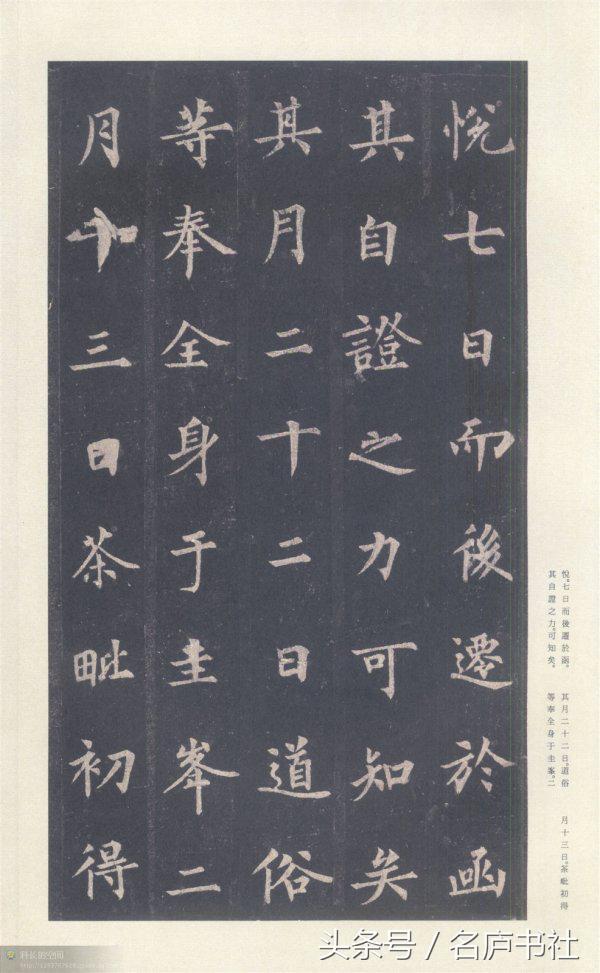 悅七日而後遷於函
其自證之力可知矣
其月二十二日道俗
等奉全身于圭峯二
月十三日茶毗初得
悅。七日而後遷於函。
其自證之力。可知矣。
其月二十二日。道俗
等奉全身于圭峯。二
月十三日。茶毗初得
科长的空间
头条号 / 名庐书社